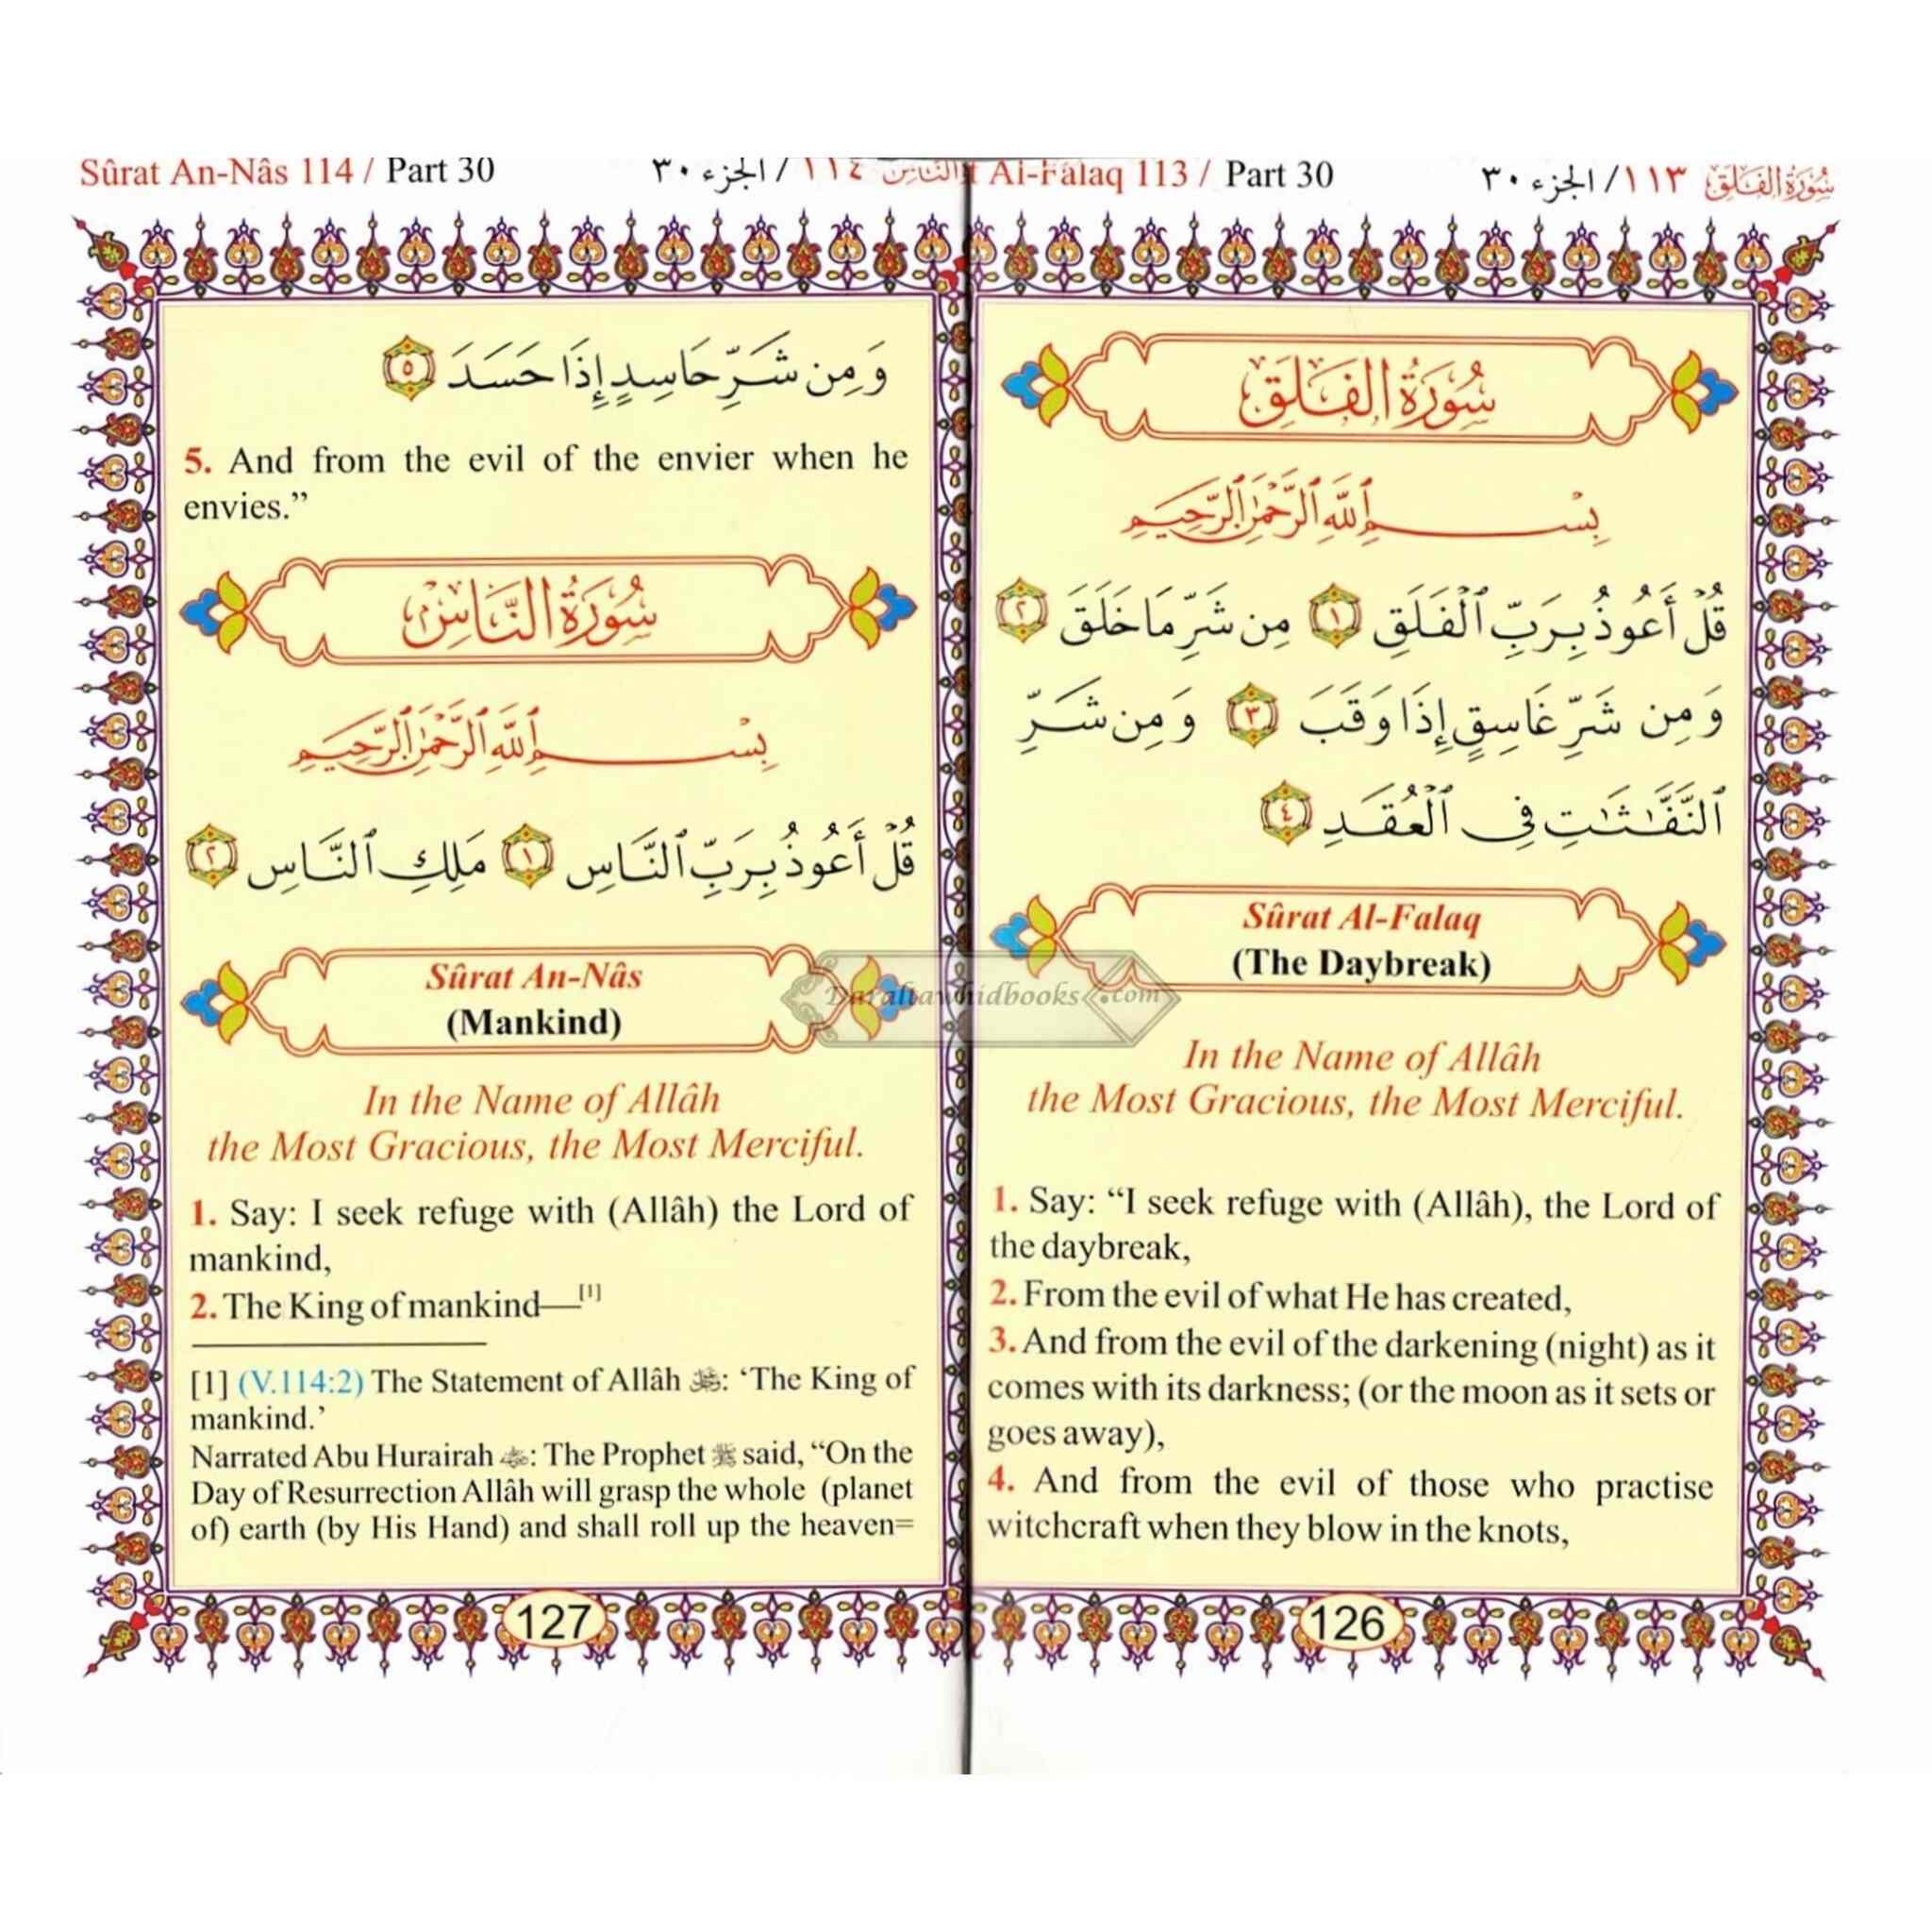 سُورَةُ الفَلَق ١١٣ / الجزء ٣٠
Al-Falaq 113 / Part 30
سُورَةُ الفَلَقِ
بِسْمِ ٱللَّهِ ٱلرَّحْمَٰنِ ٱلرَّحِيمِ
قُلْ أَعُوذُ بِرَبِّ ٱلْفَلَقِ ١ مِن شَرِّ مَا خَلَقَ ٢
وَمِن شَرِّ غَاسِقٍ إِذَا وَقَبَ ٣ وَمِن شَرِّ
ٱلنَّفَّٰثَٰتِ فِى ٱلْعُقَدِ ٤
Sûrat Al-Falaq
(The Daybreak)
In the Name of Allâh
the Most Gracious, the Most Merciful.
1. Say: “I seek refuge with (Allâh), the Lord of
the daybreak,
2. From the evil of what He has created,
3. And from the evil of the darkening (night) as it
comes with its darkness; (or the moon as it sets or
goes away),
4. And from the evil of those who practise
witchcraft when they blow in the knots,
126
النَّاس ١١٤ / الجزء ٣٠
Sûrat An-Nâs 114 / Part 30
وَمِن شَرِّ حَاسِدٍ إِذَا حَسَدَ ٥
5. And from the evil of the envier when he
envies.”
سُورَةُ النَّاسِ
بِسْمِ ٱللَّهِ ٱلرَّحْمَٰنِ ٱلرَّحِيمِ
قُلْ أَعُوذُ بِرَبِّ ٱلنَّاسِ ١ مَلِكِ ٱلنَّاسِ ٢
Sûrat An-Nâs
(Mankind)
In the Name of Allâh
the Most Gracious, the Most Merciful.
1. Say: I seek refuge with (Allâh) the Lord of
mankind,
2. The King of mankind—[1]
[1] (V.114:2) The Statement of Allâh : ‘The King of
mankind.’
Narrated Abu Hurairah : The Prophet ﷺ said, “On the
Day of Resurrection Allâh will grasp the whole (planet
of) earth (by His Hand) and shall roll up the heaven=
127
Daraltawhidbooks.com